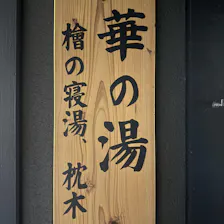 華の湯
檜の寝湯、枕木